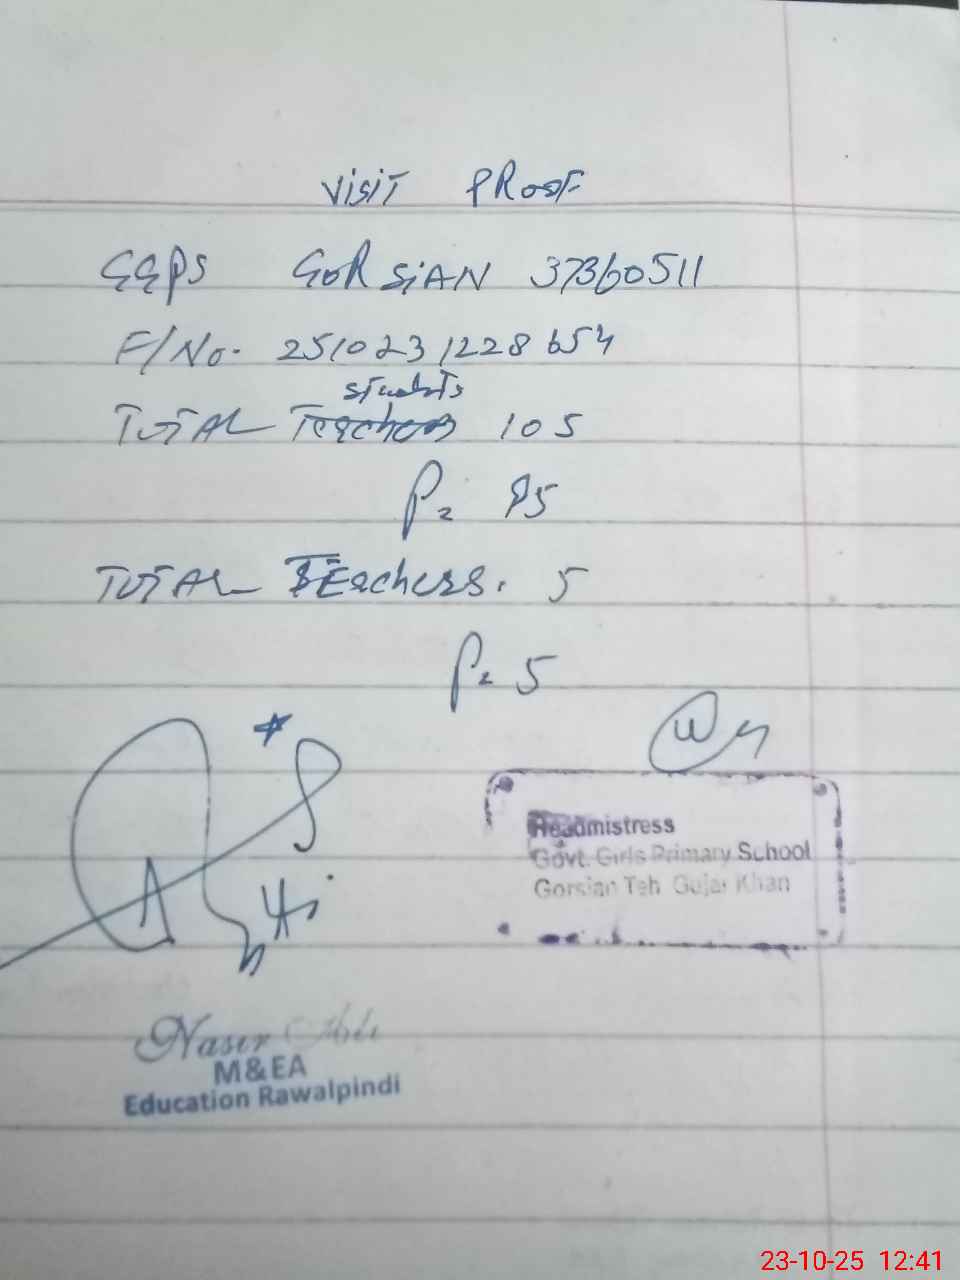 VISIT PROOF
GGPS GORSIAN 37360511
F/No. 2510231228654
students
TOTAL Teachers 105
P= 85
TOTAL TEachers. 5
P= 5
Headmistress
Govt. Girls Primary School
Gorsian Teh Gujar Khan
Nasir Ali
M&EA
Education Rawalpindi
23-10-25 12:41